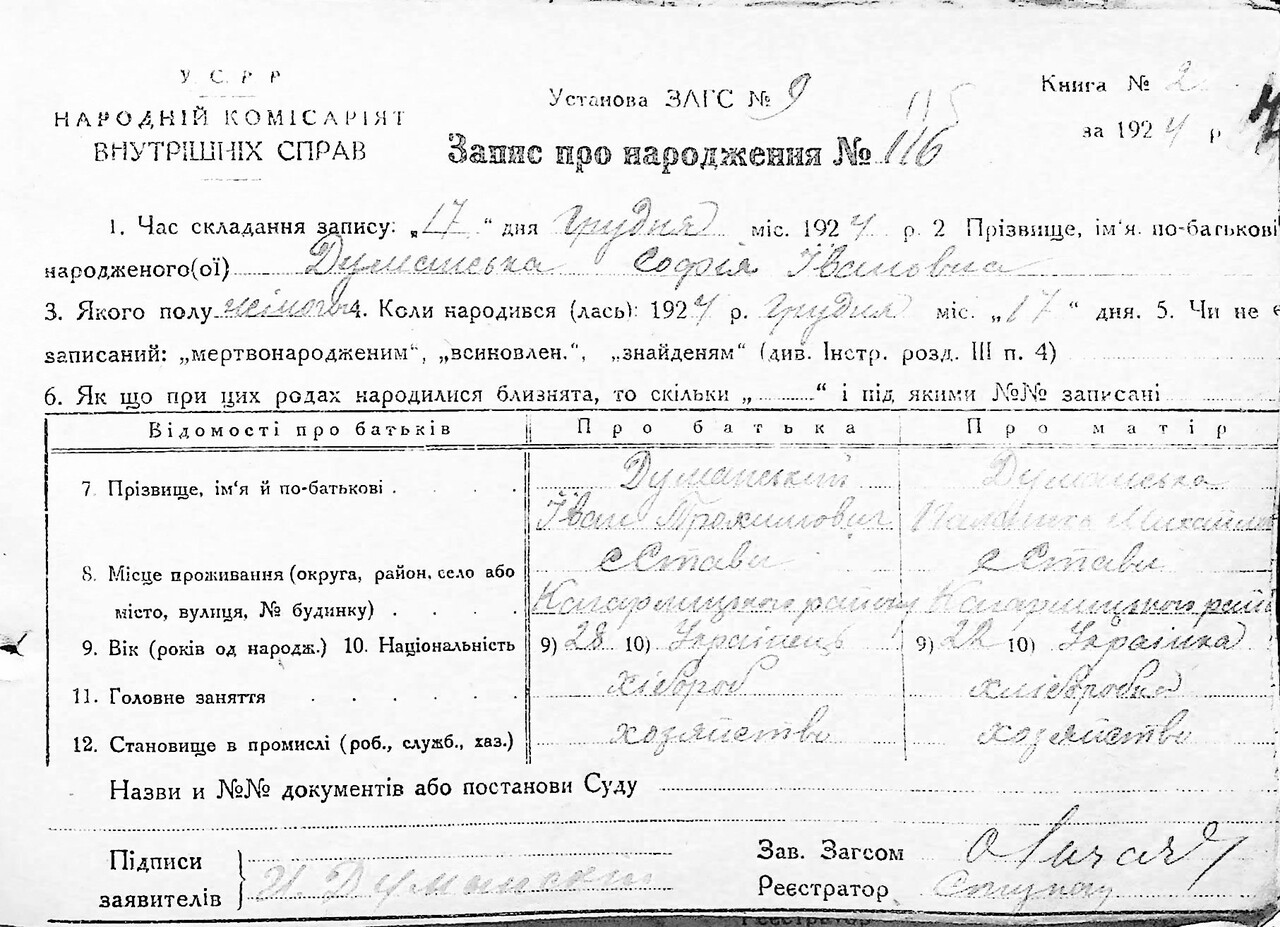 У. С. Р. Р
НАРОДНІЙ КОМІСАРІЯТ
ВНУТРІШНІХ СПРАВ
Установа ЗАГС № 9
115
Книга № 2
за 1924 р
Запис про народження № 116
1. Час складання запису: „17“ дня Грудня міс. 1924 р. 2 Прізвище, ім'я. по-батькові
народженого(ої) Думанська Софія Івановна
3. Якого полу жіночы 4. Коли народився (лась): 1924 р. Грудня міс. „17“ дня. 5. Чи не є
записаний: „мертвонародженим“, „всиновлен.“, „знайденям“ (див. Інстр. розд. III п. 4)
6. Як що при цих родах народилися близнята, то скільки „..........“ і під якими №№ записані
Відомості про батьків Про батька Про матір
7. Прізвище, ім'я й по-батькові . . . . Думанський Думанська
Іван Михайл
8. Місце проживання (округа, район, село або с Стави с Стави
місто, вулиця, № будинку) . . . . Кагарлицького району Кагарлицького рай
9. Вік (років од народж.) 10. Національність 9) 28 10) Українець 9) 22 10) Українка
11. Головне заняття . . . . . хлібороб
12. Становище в промислі (роб., служб., хаз.) хозяйство хозяйство
Назви и №№ документів або постанови Суду
Підписи
заявителів И. Думанский
Зав. Загсом
Реєстратор
Реєстратор